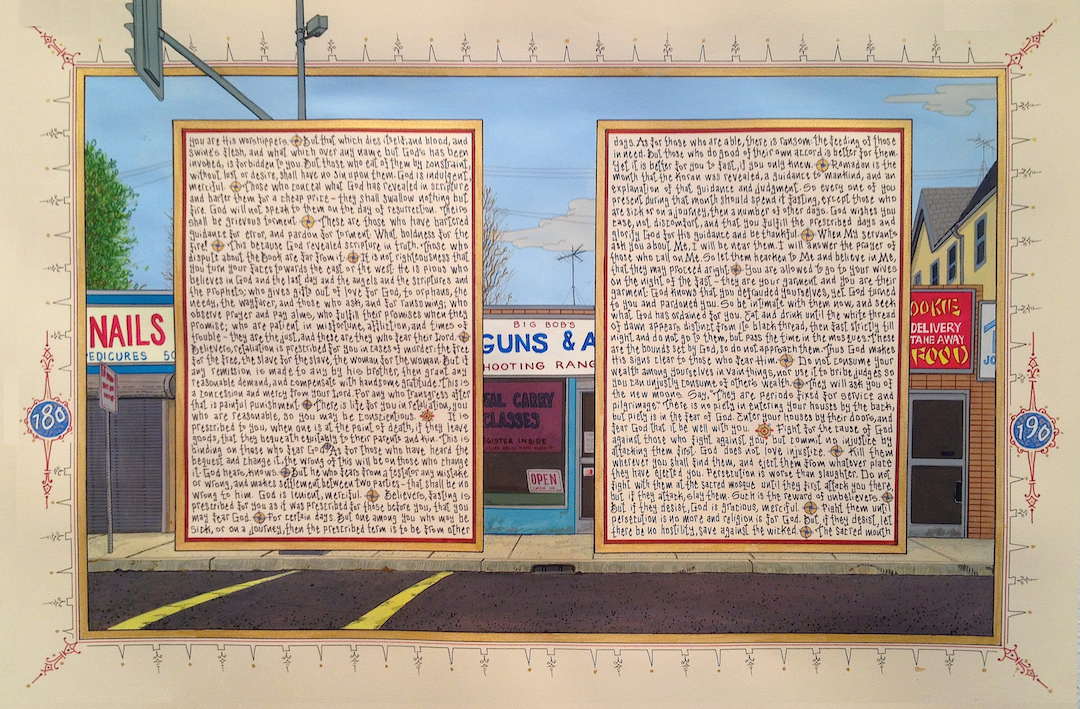 you are His worshippers. But that which dies itself, and blood, and
swine's flesh, and what which over any name but God's has been
invoked, is forbidden to you. But those who eat of them by constraint,
without lust or desire, shall have no sin upon them. God is indulgent,
merciful. Those who conceal what God has revealed in scripture
and barter them for a cheap prize – they shall swallow nothing but
fire. God will not speak to them on the day of resurrection. Theirs
shall be grievous torment. These are those who have bartered
guidance for error, and pardon for torment. What boldness for the
fire! This because God revealed scripture in truth. Those who
dispute about the Book are far from it. It is not righteousness that
you turn your faces towards the east or the west. He is pious who
believes in God and the last day and the angels and the scriptures and
the prophets; who gives gifts out of love for God, to orphans, the
needy, the wayfarer, and those who ask, and for ransoming; who
observe prayer and pay alms, who fulfill their promises when they
promise; who are patient in misfortune, affliction, and times of
trouble – they are the just, and these are they who fear their Lord.
Believers, retaliation is prescribed for you in cases of murder: the free
for the free, the slave for the slave, the woman for the woman. But if
any remission is made to any by his brother, then grant any
reasonable demand, and compensate with handsome gratitude. This is
a concession and mercy from your Lord. For any who transgress after
that is painful punishment. There is life for you in retaliation, you
who are reasonable, so you may be conscientious. It is
prescribed to you, when one is at the point of death, if they leave
goods, that they bequeath equitably to their parents and kin. This is
binding on those who fear God. As for those who have heard the
bequest and change it, the wrong of this will be on those who change
it. God hears, knows. But he who fears from a testator any mistake
or wrong, and makes settlement between two parties – that shall be no
wrong to him. God is lenient, merciful. Believers, fasting is
prescribed for you as it was prescribed for those before you, that you
may fear God. For certain days. But one among you who may be
sick, or on a journey, then the prescribed term is to be from other
days. As for those who are able, there is ransom: the feeding of those
in need. But those who do good of their own accord is better for them.
Yet it is better for you to fast, if you only knew. Ramadan is the
month that the Koran was revealed, a guidance to mankind, and an
explanation of that guidance and judgment. So every one of you
present during that month should spend it fasting, except those who
are sick or on a journey, then a number of other days. God wishes you
ease, not discomfort, and that you fulfill the prescribed days and
glorify God for His guidance and be thankful. When My servants
ask you about Me, I will be near them. I will answer the prayer of
those who call on Me. So let them hearken to Me and believe in Me,
that they may proceed aright. You are allowed to go to your wives
on the night of the fast – they are your garment and you are their
garment. God knows that you defrauded yourselves, yet God turned
to you and pardoned you. So be intimate with them now, and seek
what God has ordained for you. Eat and drink until the white thread
of dawn appears distinct from its black thread, then fast strictly till
night and do not go to them, but pass the time in the mosques. These
are the bounds set by God, so do not approach them. Thus God makes
His signs clear to those who fear Him. Do not consume your
wealth among yourselves in vain things, nor use it to bribe judges so
you can unjustly consume of others wealth. They will ask you of
the new moons. Say, "They are periods fixed for service and
pilgrimage. There is no piety in entering your houses by the back,
but piety is in the fear of God. Enter your houses by the doors, and
fear God that it be well with you. Fight for the cause of God
against those who fight against you, but commit no injustice by
attacking them first. God does not love injustice. Kill them
wherever you shall find them, and eject them from whatever place
they have ejected you. Persecution is worse than slaughter. Do not
fight with them at the sacred mosque until they first attack you there,
but if they attack, slay them. Such is the reward of unbelievers.
But if they desist, God is gracious, merciful. Fight them until
persecution is no more and religion is for God. But if they desist, let
there be no hostility, save against the wicked. The sacred month
180
190
NAILS
PEDICURES 50
BIG BOB'S
GUNS & A
HOOTING RANG
EAL CARRY
CLASSES
EGISTER INSIDE
OPEN
OOKIE
DELIVERY
TAKE AWAY
FOOD
JO